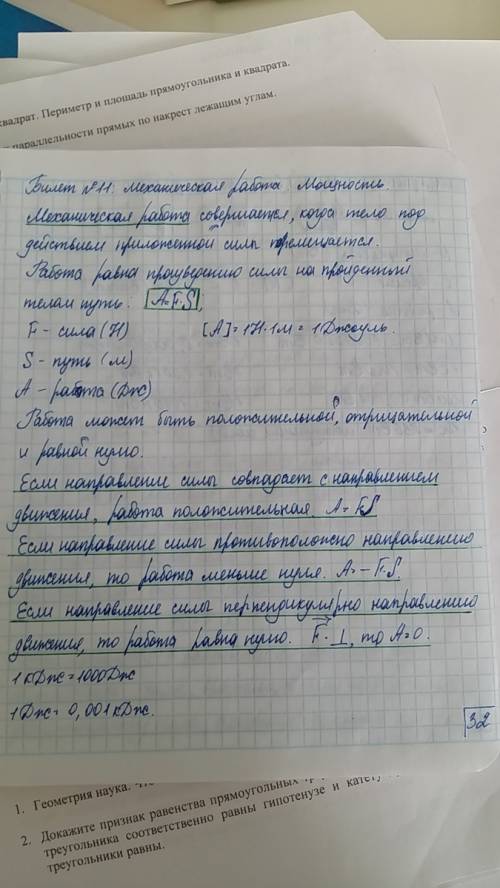 квадрат. Периметр и площадь прямоугольника и квадрата.
параллельности прямых по накрест лежащим углам.
Билет №11: Механическая работа. Мощность.
Механическая работа совершается, когда тело под
действием приложенной силы перемещается.
Работа равна произведению силы на пройденный
телом путь: A=F·S,
F - сила (Н) [A]=1Н·1м=1Джоуль.
S - путь (м)
A - работа (Дж)
Работа может быть положительной, отрицательной
и равной нулю.
Если направление силы совпадает с направлением
движения, работа положительная. A=FS
Если направление силы противоположно направлению
движения, то работа меньше нуля. A=-F·S.
Если направление силы перпендикулярно направлению
движения, то работа равна нулю. F·⊥, то A=0.
1кДж=1000Дж
1Дж=0,001кДж.
32
1. Геометрия наука.
2. Докажите признак равенства прямоугольных
треугольника соответственно равны гипотенузе и катету
треугольники равны.